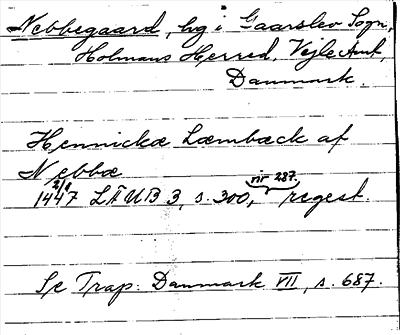 Nebbegaard, hg i Gaarslev Sogn,
Holmans Herred, Vejle Amt,
Danmark.
Hennickæ Læmbæck af
Nebbæ
1447 2/2 LÄUB 3, s. 300, nr 287. regest.
Se Trap: Danmark VII, s. 687.